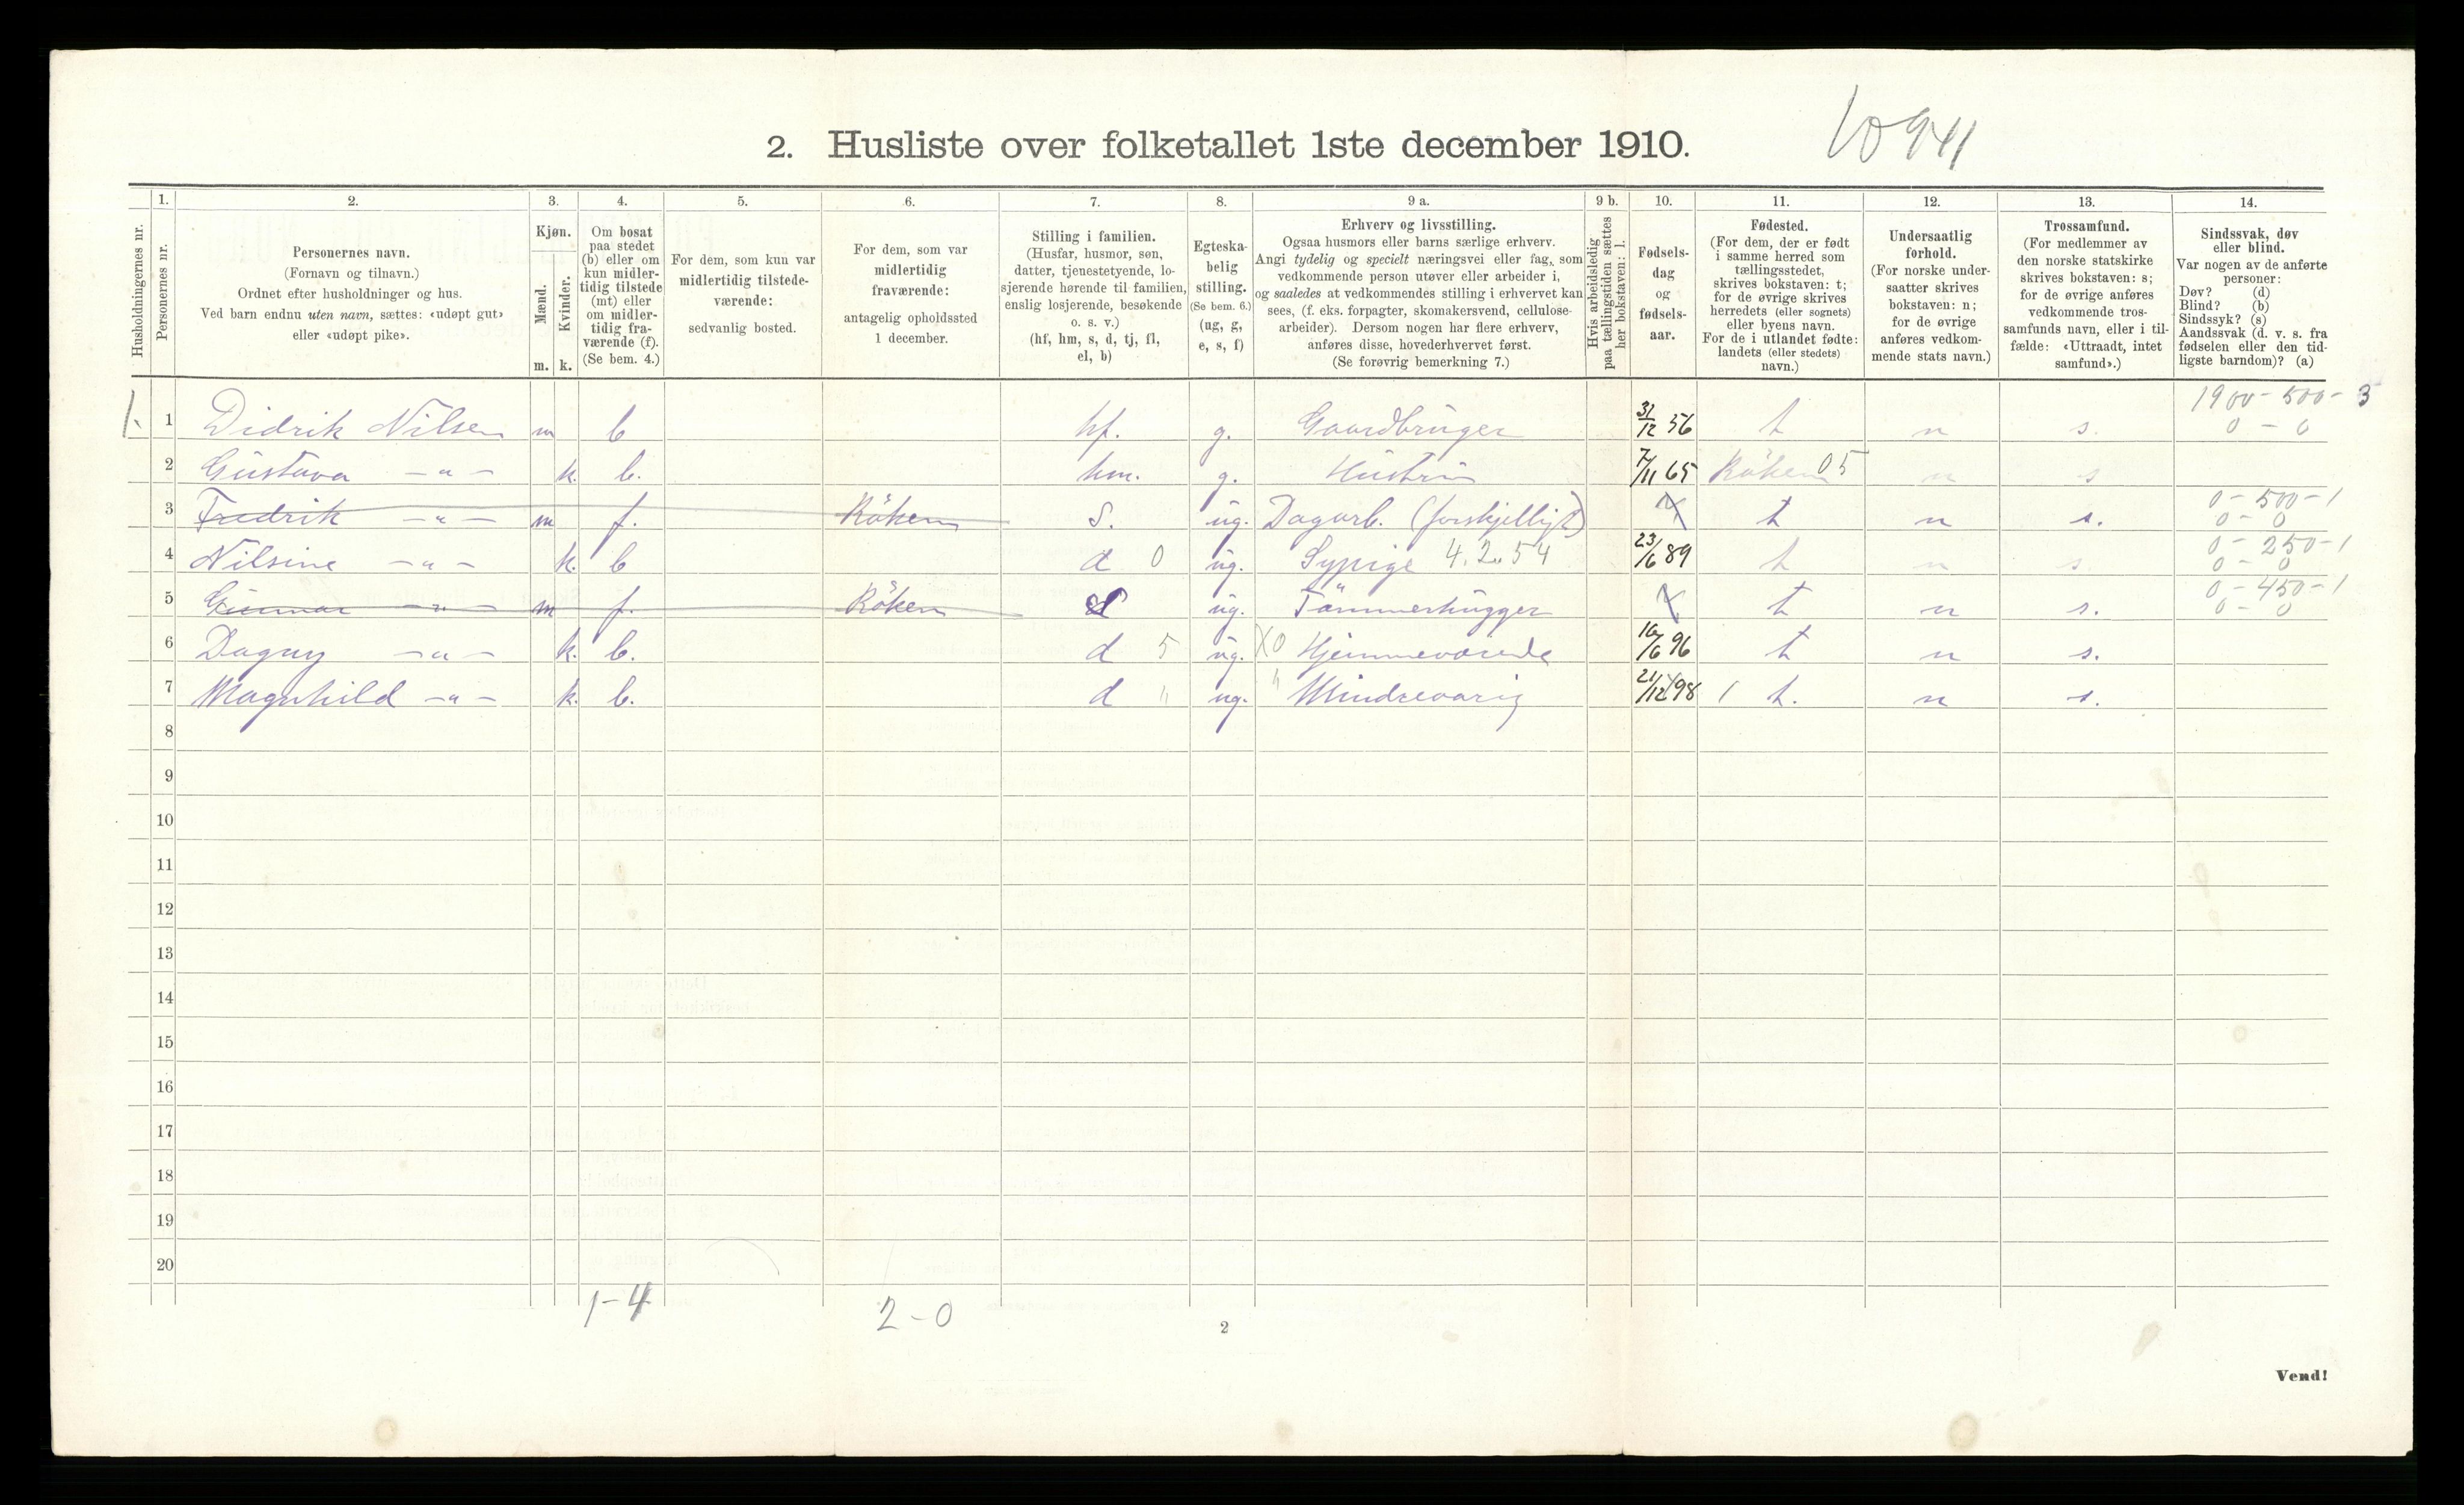 2. Husliste over folketallet 1ste december 1910.
1. 2. 3. 4. 5. 6. 7. 8. 9 a. 9 b. 10. 11. 12. 13. 14.
Husholdningernes nr.
Personernes nr.
Personernes navn.
(Fornavn og tilnavn.)
Ordnet efter husholdninger og hus.
Ved barn endnu uten navn, sættes: «udøpt gut»
eller «udøpt pike».
Kjøn.
Mænd.
Kvinder.
m. k.
Om bosat
paa stedet
(b) eller om
kun midler-
tidig tilstede
(mt) eller
om midler-
tidig fra-
værende (f).
(Se bem. 4.)
For dem, som kun var
midlertidig tilstede-
værende:
sedvanlig bosted.
For dem, som var
midlertidig
fraværende:
antagelig opholdssted
1 december.
Stilling i familien.
(Husfar, husmor, søn,
datter, tjenestetyende, lo-
sjerende hørende til familien,
enslig losjerende, besøkende
o. s. v.)
(hf, hm, s, d, tj, fl,
el, b)
Egteska-
belig
stilling.
(Se bem. 6.)
(ug, g,
e, s, f)
Erhverv og livsstilling.
Ogsaa husmors eller barns særlige erhverv.
Angi tydelig og specielt næringsvei eller fag, som
vedkommende person utøver eller arbeider i,
og saaledes at vedkommendes stilling i erhvervet kan
sees, (f. eks. forpagter, skomakersvend, cellulose-
arbeider). Dersom nogen har flere erhverv,
anføres disse, hovederhvervet først.
(Se forøvrig bemerkning 7.)
Hvis arbeidsledig
paa tællingstiden sættes
her bokstaven: l.
Fødsels-
dag
og
fødsels-
aar.
Fødested.
(For dem, der er født
i samme herred som
tællingsstedet,
skrives bokstaven: t;
for de øvrige skrives
herredets (eller sognets)
eller byens navn.
For de i utlandet fødte:
landets (eller stedets)
navn.)
Undersaatlig
forhold.
(For norske under-
saatter skrives
bokstaven: n;
for de øvrige
anføres vedkom-
mende stats navn.)
Trossamfund.
(For medlemmer av
den norske statskirke
skrives bokstaven: s;
for de øvrige anføres
vedkommende tros-
samfunds navn, eller i til-
fælde: «Uttraadt, intet
samfund».)
Sindssvak, døv
eller blind.
Var nogen av de anførte
personer:
Døv? (d)
Blind? (b)
Sindssyk? (s)
Aandssvak (d. v. s. fra
fødselen eller den tid-
ligste barndom)? (a)
1900 - 500 - 3
1. 1 Didrik Nilsen m b hf. g. Gaardbruger 31/12 56 t n s. 0 - 0
2 Gustava -"- k. b. hm. g. Hustru 7/11 65 Röken 05 n s
0 - 500 - 1
3 Fredrik -"- m f. Röken s. ug. Dagarb. (forskjelligt) X t n s. 0 - 0
0 - 250 - 1
4 Nilsine -"- k. b d 0 ug. Sypige 4.2.54 23/6 89 t n s 0 - 0
0 - 450 - 1
5 Gunnar -"- m f. Röken ug. Tömmerhugger X t n s. 0 - 0
6 Dagny -"- k. b. d 5 ug. X0 Hjemmeværende 16/6 96 t n s.
7 Magnhild -"- k. b. d " ug. " Mindreaarig 21/12 98 1 t. n s.
8
9
10
11
12
13
14
15
16
17
18
19
20
1-4 2-0
2
Vend!